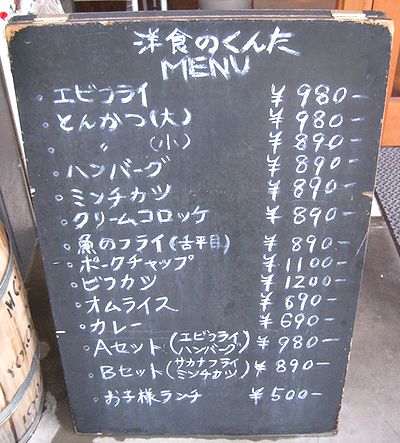 洋食のくんた
MENU
・エビフライ ¥980-
・とんかつ(大) ¥980-
〃 (小) ¥890-
・ハンバーグ ¥890-
・ミンチカツ ¥890-
・クリームコロッケ ¥890-
・魚のフライ(舌平目) ¥890-
・ポークチャップ ¥1100-
・ビフカツ ¥1200-
・オムライス ¥690-
・カレー ¥690-
・Aセット(エビフライ ハンバーグ) ¥980-
・Bセット(サカナフライ ミンチカツ) ¥890-
・お子様ランチ ¥500-